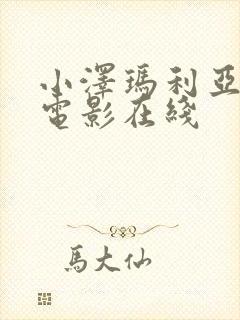 小澤瑪利亞
電影在綫
馬大仙